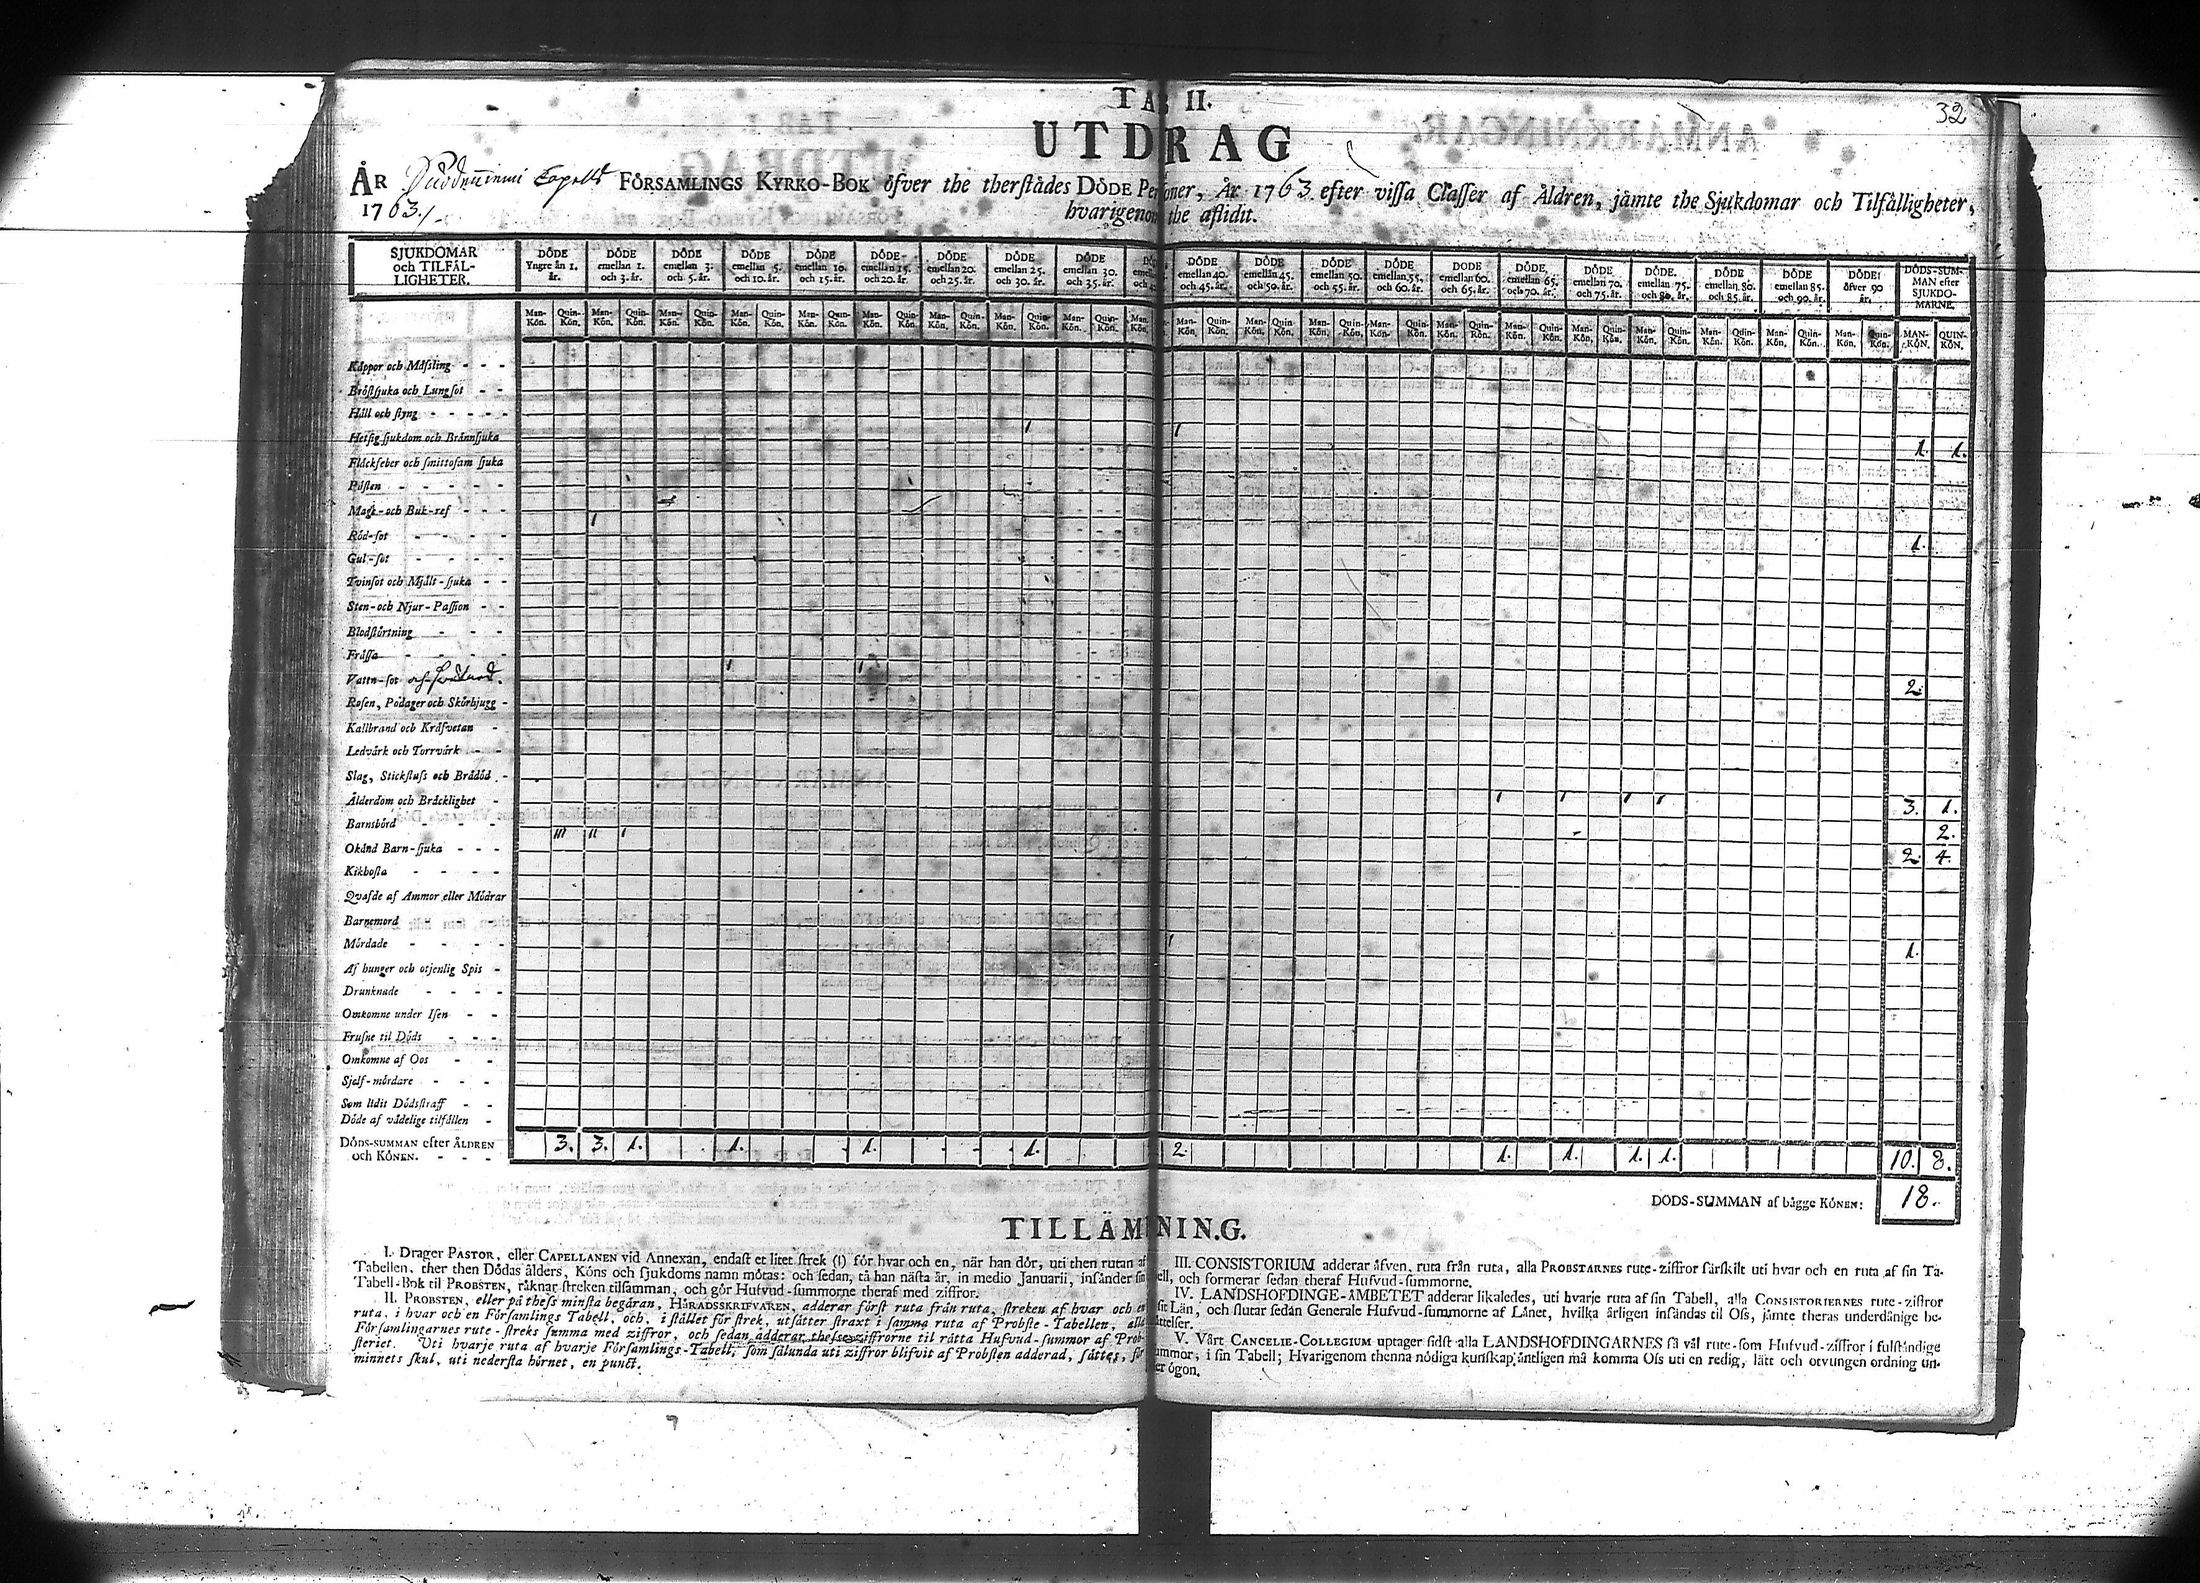 32
TAB II.
UTDRAG
ÅR Capells FÖRSAMLINGS KYRKO-BOK öfver the therstädes DÖDE Personer, År 1763. efter vissa Classer af Åldren, jämte the Sjukdomar och Tilfälligheter,
1763. hvarigenom the aflidit.
SJUKDOMAR och TILFÄL-LIGHETER.
DÖDE Yngre än 1. år.
DÖDE emellan 1. och 3. år.
DÖDE emellan 3. och 5. år.
DÖDE emellan 5. och 10. år.
DÖDE emellan 10. och 15. år.
DÖDE emellan 15. och 20. år.
DÖDE emellan 20. och 25. år.
DÖDE emellan 25. och 30. år.
DÖDE emellan 30. och 35. år.
DÖDE emellan 40. och 45. år.
DÖDE emellan 45. och 50. år.
DÖDE emellan 50. och 55. år.
DÖDE emellan 55. och 60. år.
DÖDE emellan 60. och 65. år.
DÖDE emellan 65. och 70. år.
DÖDE emellan 70. och 75. år.
DÖDE emellan 75. och 80. år.
DÖDE emellan 80. och 85. år.
DÖDE emellan 85. och 90. år.
DÖDE öfver 90 år.
DÖDS-SUMMAN efter SJUKDOMARNE.
Man-Kön. Quin-Kön. Man-Kön. Quin-Kön. Man-Kön. Quin-Kön. Man-Kön. Quin-Kön. Man-Kön. Quin-Kön. Man-Kön. Quin-Kön. Man-Kön. Quin-Kön. Man-Kön. Quin-Kön. Man-Kön. Quin-Kön. Man-Kön. Man-Kön. Quin-Kön. Man-Kön. Quin-Kön. Man-Kön. Quin-Kön. Man-Kön. Quin-Kön. Man-Kön. Quin-Kön. Man-Kön. Quin-Kön. Man-Kön. Quin-Kön. Man-Kön. Quin-Kön. Man-Kön. Quin-Kön. Man-Kön. Quin-Kön. Man-Kön. Quin-Kön. MAN-KÖN. QUIN-KÖN.
Koppor och Mässling
Bröstsjuka och Lungsot
Håll och styng
Hetsig sjukdom och Brännsjuka 1 1 1. 1.
Fläckfeber och smittosam sjuka
Pisten
Magk- och Buk-ref
Röd-sot 1 1.
Gul-sot
Tvinsot och Mjält-sjuka
Sten- och Njur-Passion
Blodstörtning
Frässa
Vattn-sot och 1 1 2.
Rosen, Podager och Skörbjugg
Kallbrand och Kräfvetan
Ledvärk och Torrvärk
Slag, Stickfluss och Brådöd
Ålderdom och Bräcklighet 1 1 1 1 3. 1.
Barnsbörd 2.
Okänd Barn-sjuka III II 1 2. 4.
Kikhosta
Qvafde af Ammor eller Mödrar
Barnemord
Mördade 1 1.
Af hunger och otjenlig Spis
Drunknade
Omkomne under Isen
Frusne til Döds
Omkomne af Oos
Sjelf-mördare
Som lidit Dödsstraff
Döde af vådelige tilfällen
DÖDS-SUMMAN efter ÅLDREN
och KÖNEN. 3. 3. 1. 1. 1. 1. 2. 1. 1. 1. 1. 10. 8.
DÖDS-SUMMAN af bägge KÖNEN: 18.
TILLÄMNING.
I. Drager PASTOR, eller CAPELLANEN vid Annexan, endast et litet strek (I) för hvar och en, när han dör, uti then rutan af
Tabellen, ther then Dödas ålders, Köns och sjukdoms namn mötas: och sedan, tå han nästa år, in medio Januarii, insänder sin
Tabell-Bok til PROBSTEN, räknar streken tilsamman, och gör Hufvud-summorne theraf med ziffror.
II. PROBSTEN, eller på thess minsta begäran, HÄRADSSKRIFVAREN, adderar först ruta från ruta, streken af hvar och en
ruta, i hvar och en Församlings Tabell, och, i stället för strek, utsätter straxt i samma ruta af Probste-Tabellen, alla
Församlingarnes rute-streks summa med ziffror, och sedan adderar thesse ziffrorne til rätta Hufvud-summor af Prob-
steriet. Uti hvarje ruta af hvarje Församlings-Tabell, som sålunda uti ziffror blifvit af Probsten adderad, sättes, för
minnets skul, uti nedersta hörnet, en punct.
III. CONSISTORIUM adderar äfven, ruta från ruta, alla PROBSTARNES rute-ziffror särskilt uti hvar och en ruta af sin Ta-
bell, och formerar sedan theraf Hufvud-summorne.
IV. LANDSHÖFDINGE-ÄMBETET adderar likaledes, uti hvarje ruta af sin Tabell, alla CONSISTORIERNES rute-ziffror
sit Län, och slutar sedan Generale Hufvud-summorne af Länet, hvilka årligen insändas til Oss, jämte theras underdånige be-
rättelser.
V. Vårt CANCELIE-COLLEGIUM uptager sidst alla LANDSHÖFDINGARNES så väl rute-som Hufvud-ziffror i fulständige
summor, i sin Tabell; Hvarigenom thenna nödiga kunskap äntligen må komma Oss uti en redig, lätt och otvungen ordning un-
der ögon.